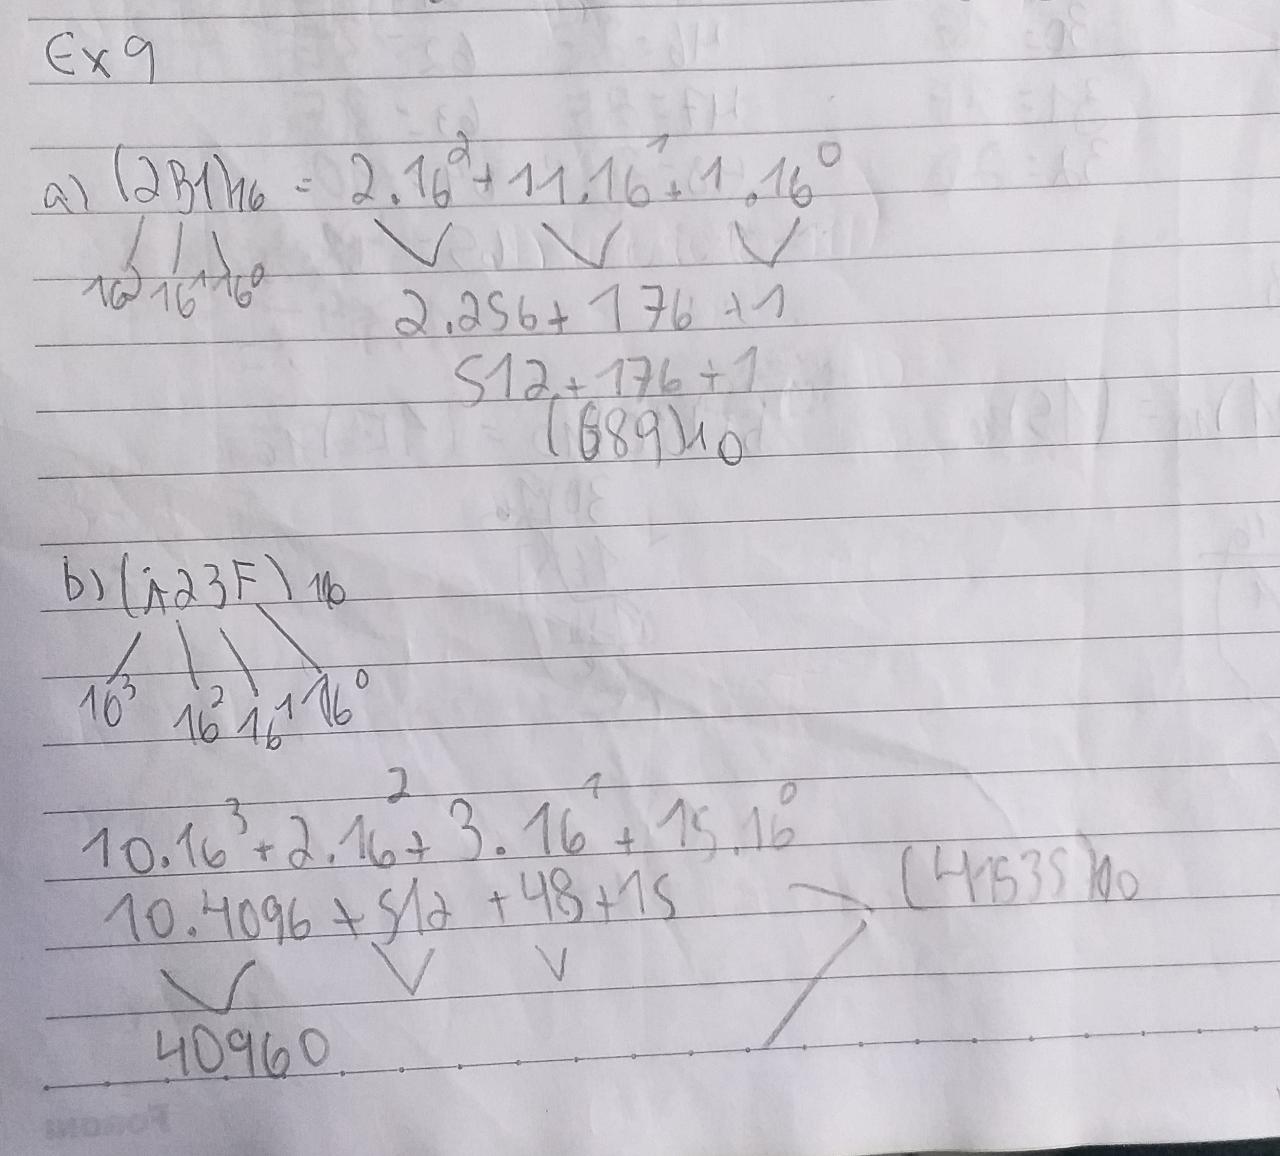 Ex 9
a) (2B1)16 = 2.16² + 11.16¹ + 1.16⁰
16² 16¹ 16⁰
2.256 + 176 + 1
512 + 176 + 1
(689)10
b) (A23F)16
16³ 16² 16¹ 16⁰
10.16³ + 2.16² + 3.16¹ + 15.16⁰
10.4096 + 512 + 48 + 15 (41535)10
40960